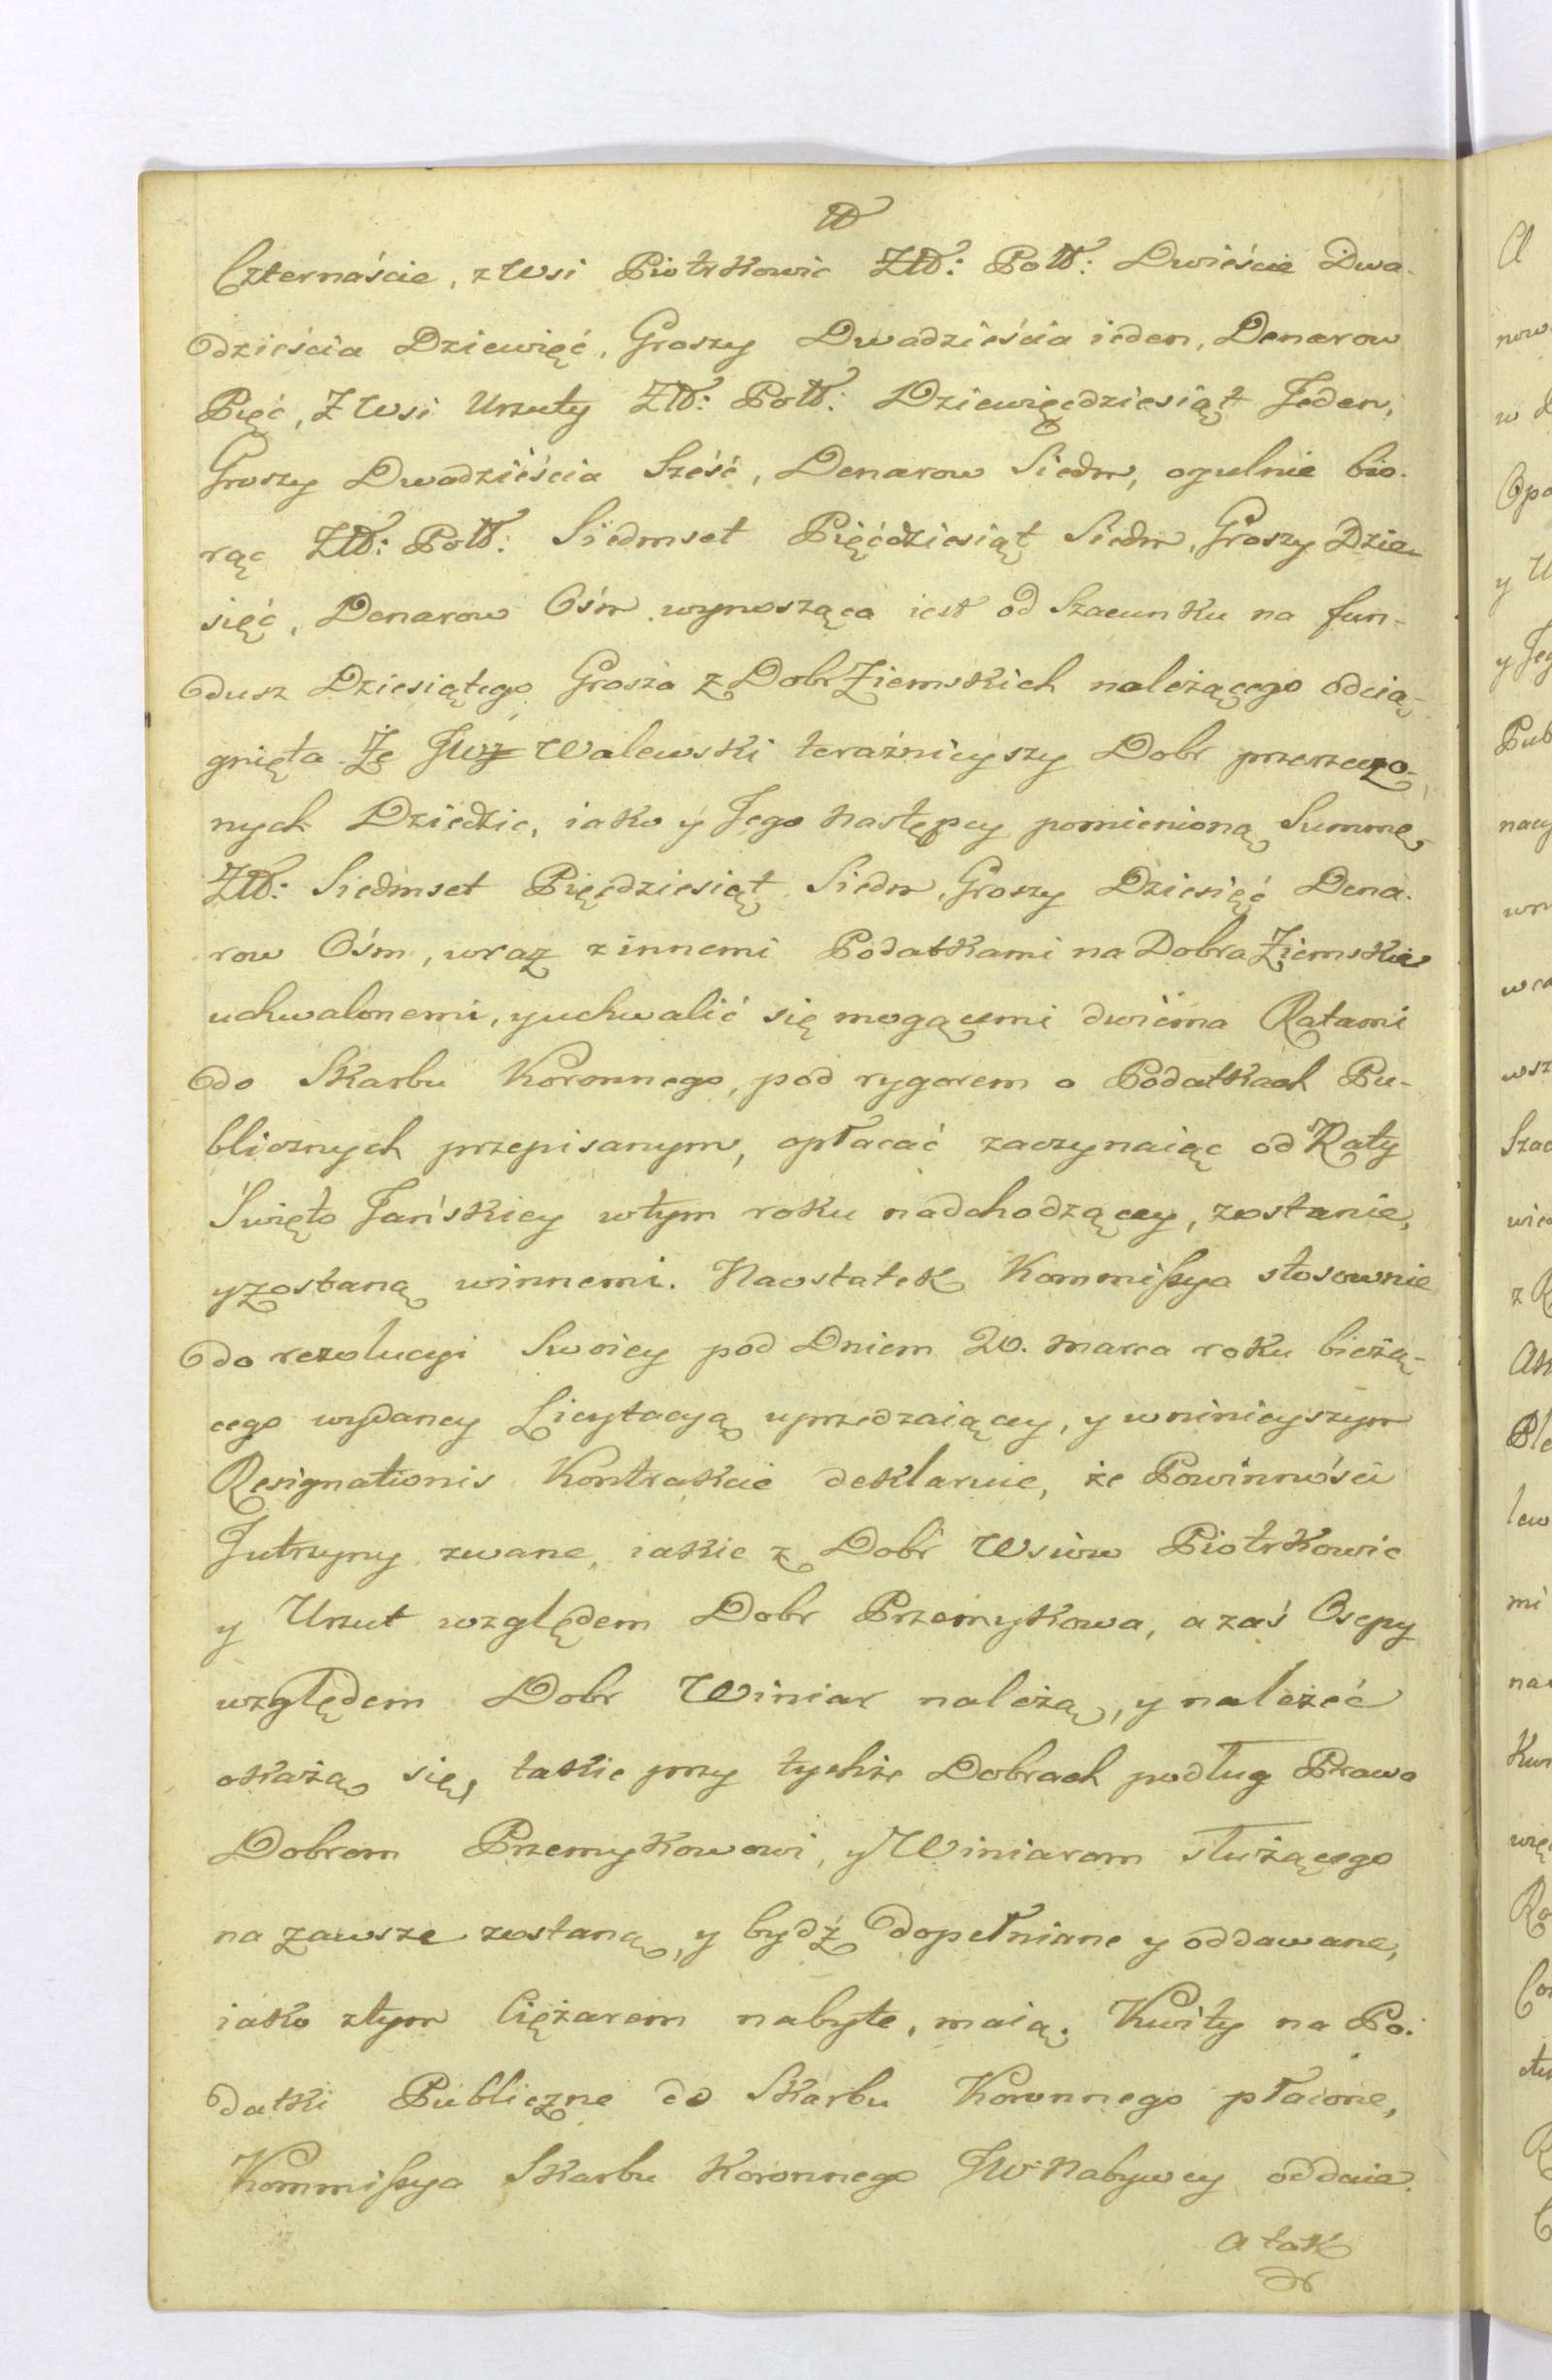 Czternaście, z Wsi Piotrkowic Złł: Poll: Dwieście Dwa-
dzieścia Dziewięć, Groszy Dwadzieścia ieden, Denarow
Pięć, z Wsi Urzuty Złł: Poll: Dziewięćdziesiąt Jeden,
Groszy Dwadzieścia Sześć, Denarow Siedm, ogulnie bio-
rąc Złł: Poll: Siedmset Pięćdziesiąt Siedm, Groszy Dzie-
sięć, Denarow Ośm wynosząca iest od Szacunku na fun-
dusz Dziesiątego Grosza z Dobr Ziemskich należącego odcią-
gnięta. Że JWż Walewski teraźnieyszy Dobr przerzeczo-
nych Dziedzic, iako y Jego Następcy pomienioną Summę
Złł: Siedmset Pięćdziesiąt Siedm, Groszy Dziesięć Dena-
row Ośm, wraz z innemi Podatkami na Dobra Ziemskie
uchwalonemi, y uchwalić się mogącemi dwiema Ratami
do Skarbu Koronnego, pod rygorem o Podatkach Pu-
blicznych przepisanym, opłacać zaczynaiąc od Raty
Święto Jańskiey w tym roku nadchodzącey, zostanie,
y zostaną winnemi. Naostatek Kommissya stosownie
do rezolucyi Swoiey pod Dniem 20. Marca roku bieżą-
cego wydaney Licytacyą uprzedzaiącey, y w ninieyszym
Resignationis Kontrakcie deklaruie, że Powinności
Jutrzyny zwane, iakie z Dobr Wsiow Piotrkowic
y Urzut względem Dobr Przemykowa, a zaś Osepy
względem Dobr Winiar należą, y należeć
okażą się, takie przy tychże Dobrach podług Prawa
Dobrom Przemykowowi, y Winiarom służącego
na zawsze zostaną, y bydź dopełniane y oddawane,
iako z tym Ciężarem nabyte, maią. Kwity na Po-
datki Publiczne do Skarbu Koronnego płacone,
Kommissya Skarbu Koronnego JW Nabywcy oddaie.
A tak